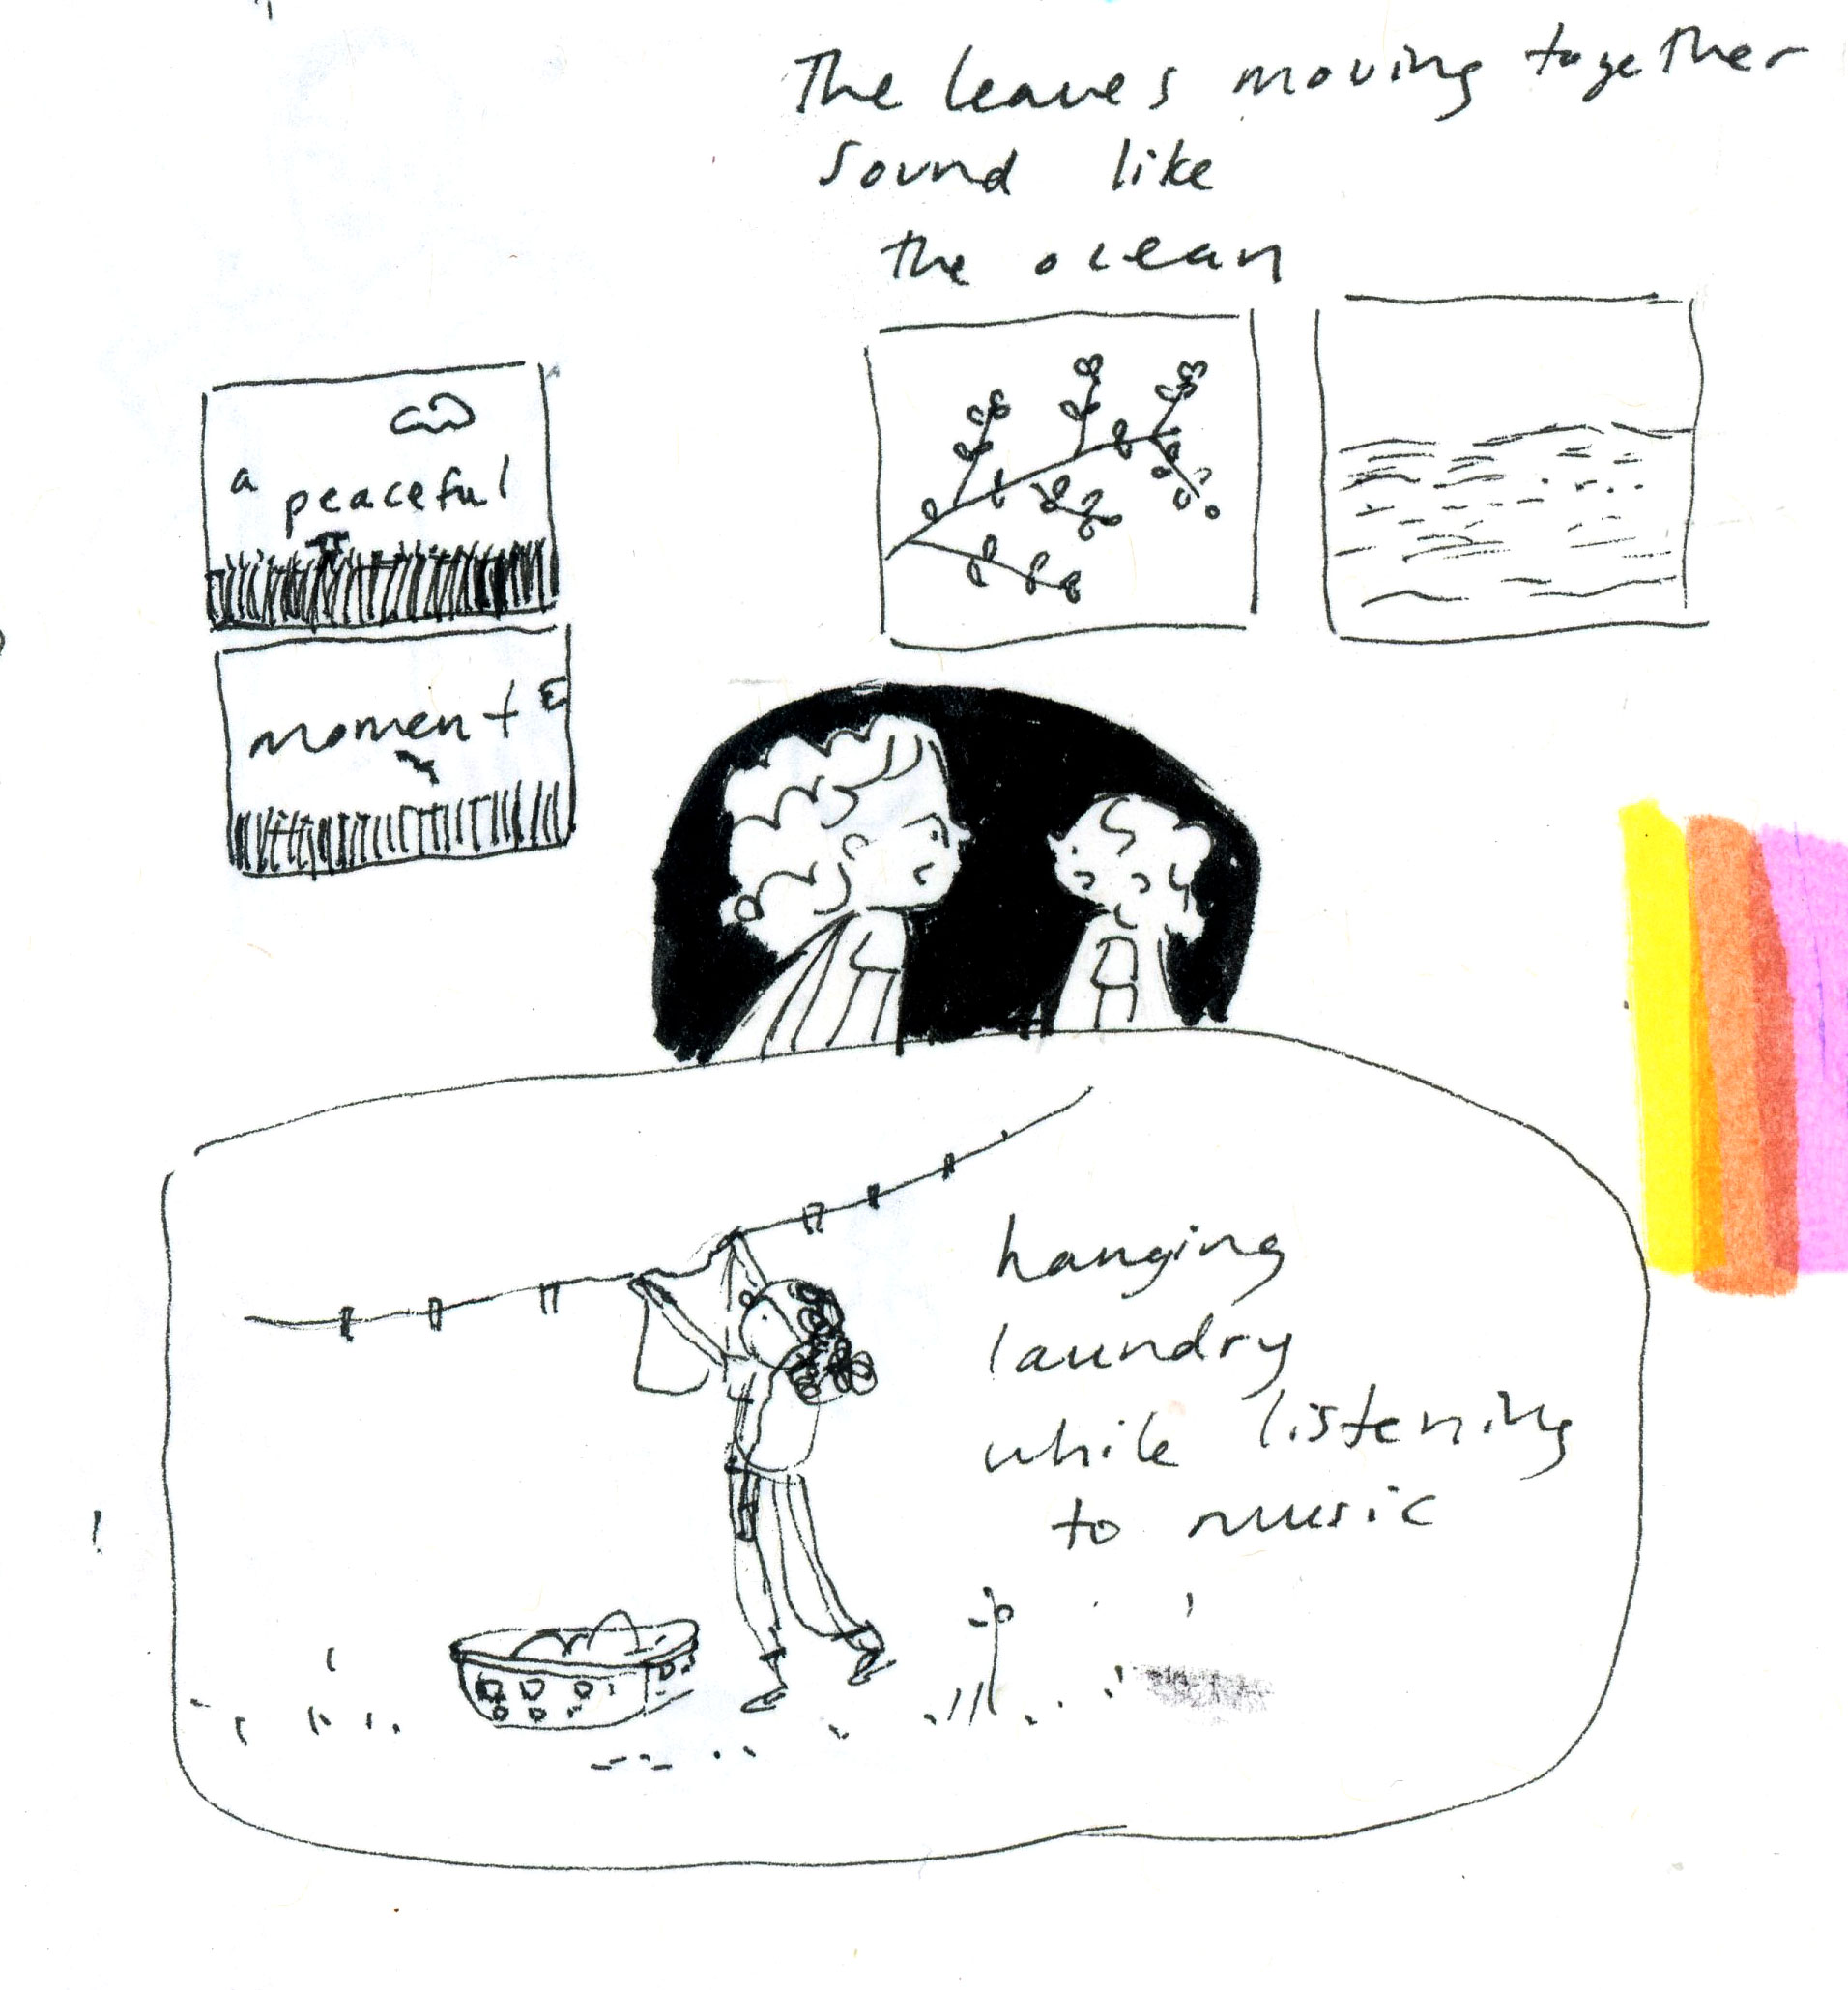 The leaves moving together
sound like
the ocean
a peaceful
moment
hanging
laundry
while listening
to music